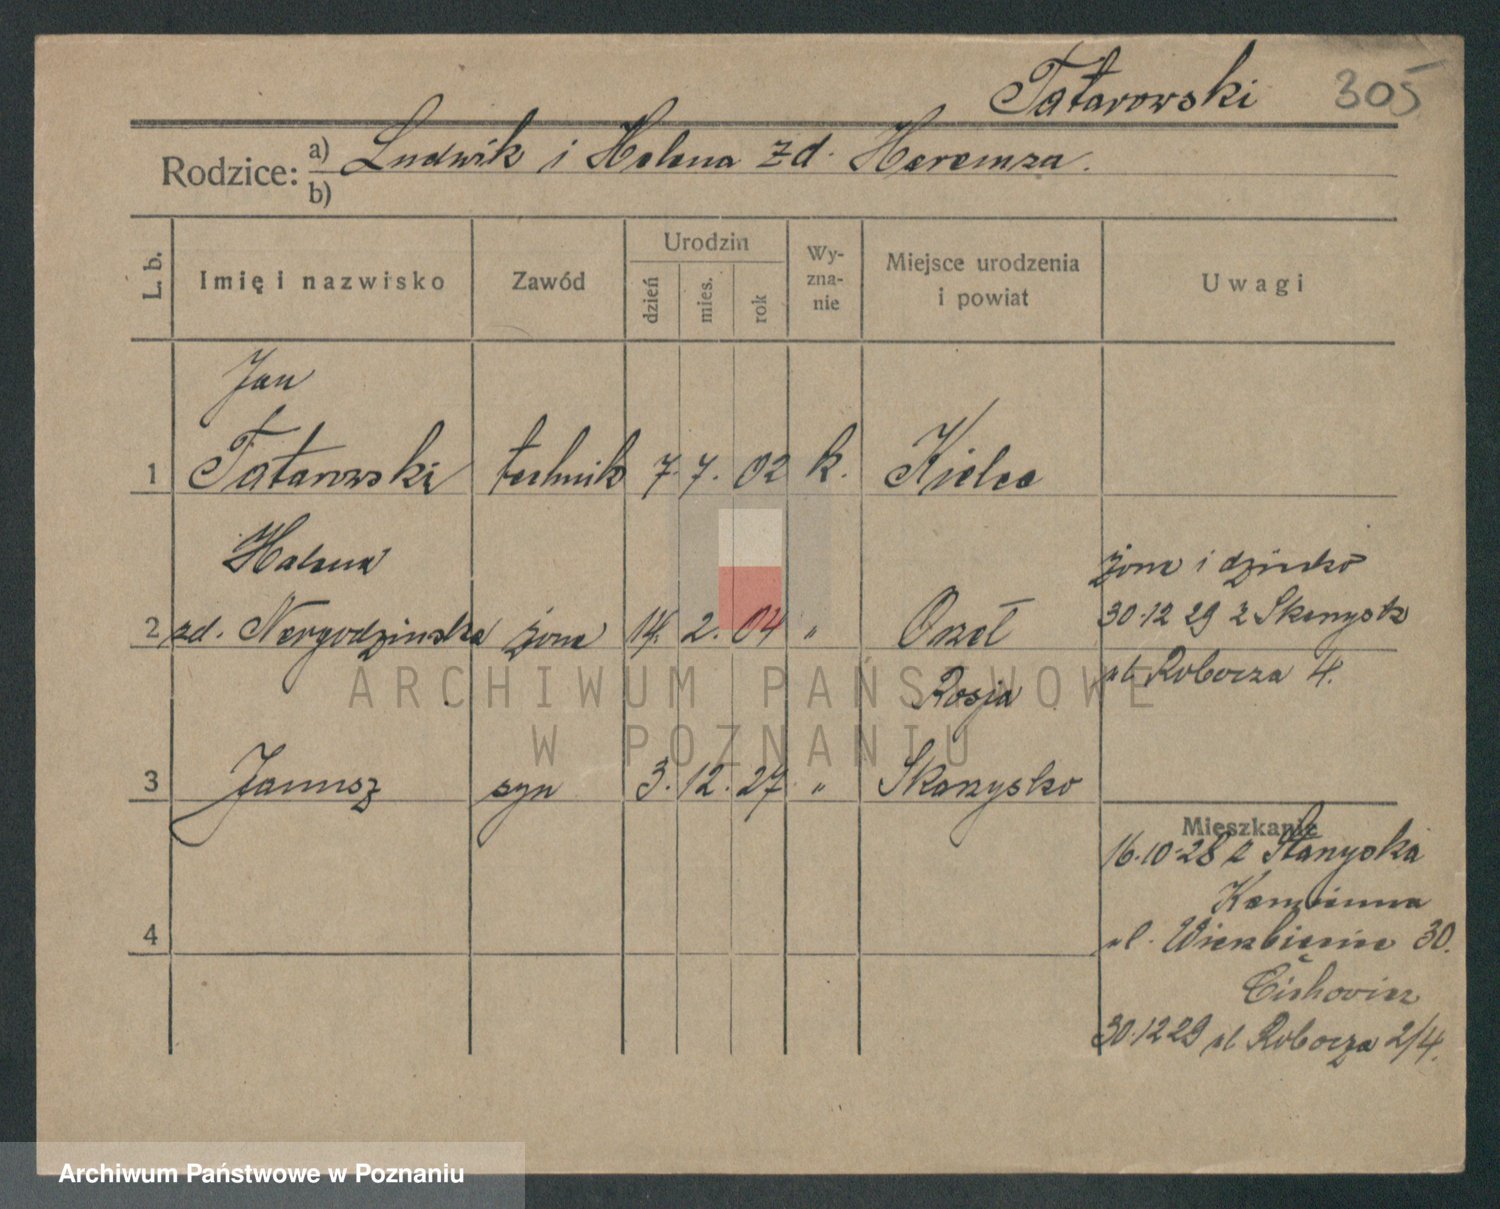 Tatarowski 305
Rodzice: a) Ludwik i Helena zd. Haremza.
b)
L. b. Imię i nazwisko Zawód Urodzin dzień mies. rok Wy-zna-nie Miejsce urodzenia i powiat Uwagi
Jan
1 Tatarowski technik 7. 7. 02 k. Kielce
Helena żona i dziecko
2 zd. żona 14. 2. 04 " Orzeł 30.12 29 z
Rosja ul Robocza 4.
3 Janusz syn 3. 12. 27 " Skarzysko
Mieszkanie
16.10.28 z
Kamienna
4 ul. Wierzbięcice 30.
30.12 29 ul Robocza 2/4.
ARCHIWUM PAŃSTWOWE
W POZNANIU
Archiwum Państwowe w Poznaniu